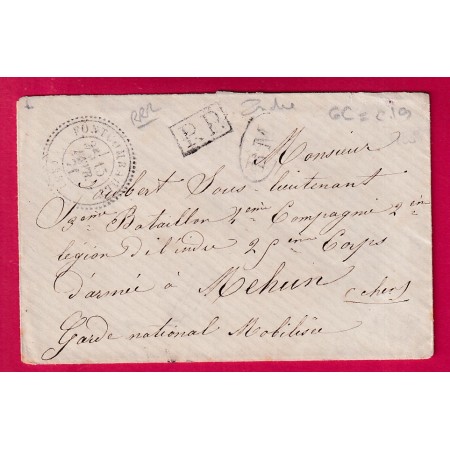 RRR
Indre
GC =
PONT-CH
P.P.
BM
Monsieur
Sous-lieutenant
3eme Bataillon 2eme Compagnie 2em
légion de l'indre 25eme Corps
d'armée à Mehun
(cher)
Garde national Mobilisée